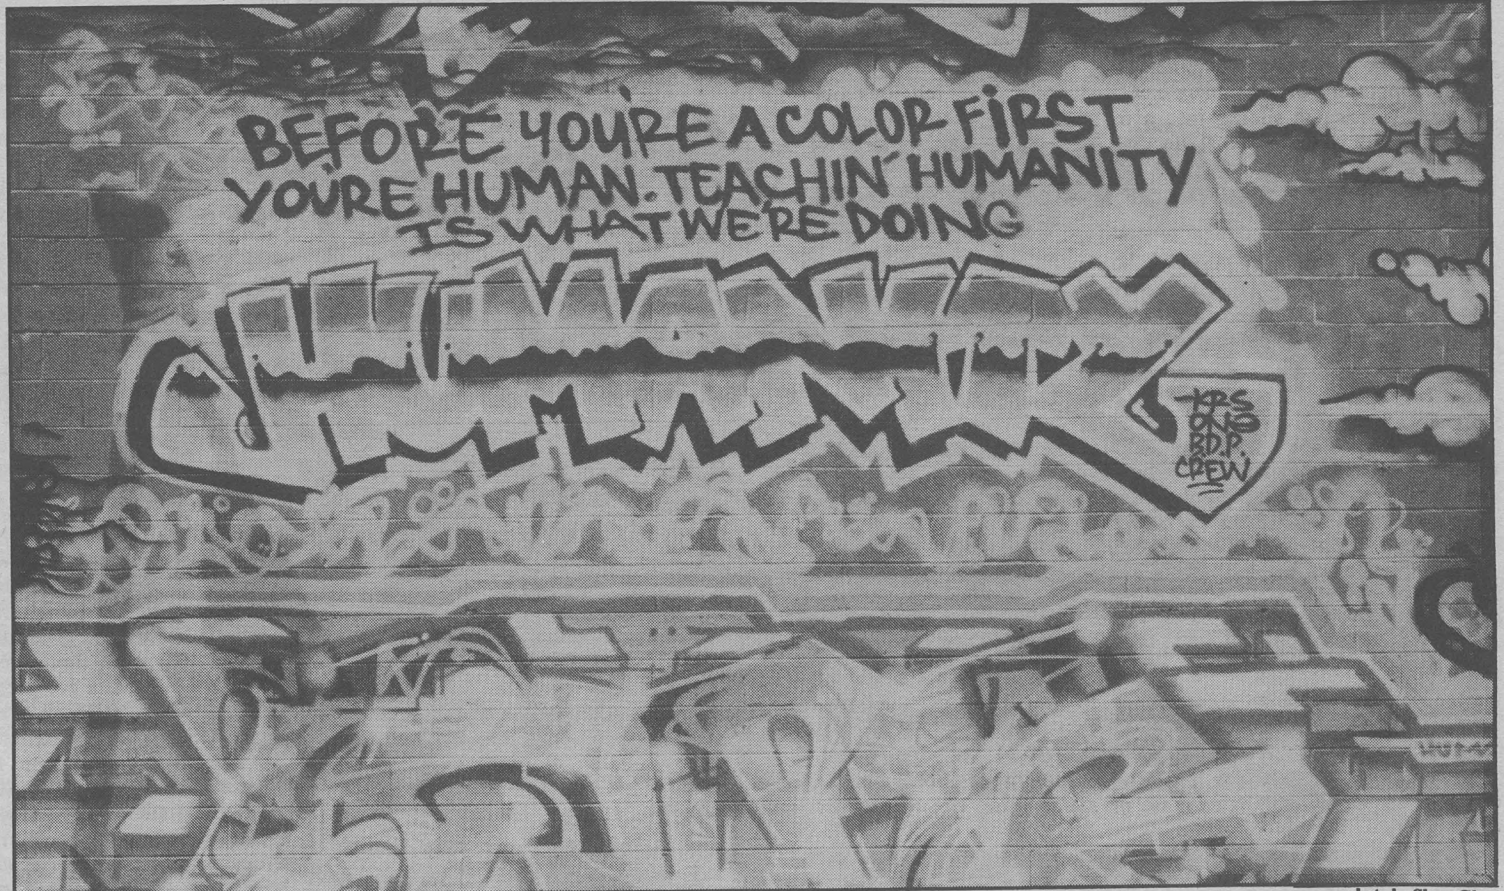 BEFORE YOU'RE A COLOR FIRST
YOU'RE HUMAN. TEACHIN' HUMANITY
IS WHAT WE'RE DOING
HUMANITY
KRS
ONE
B.D.P.
CREW